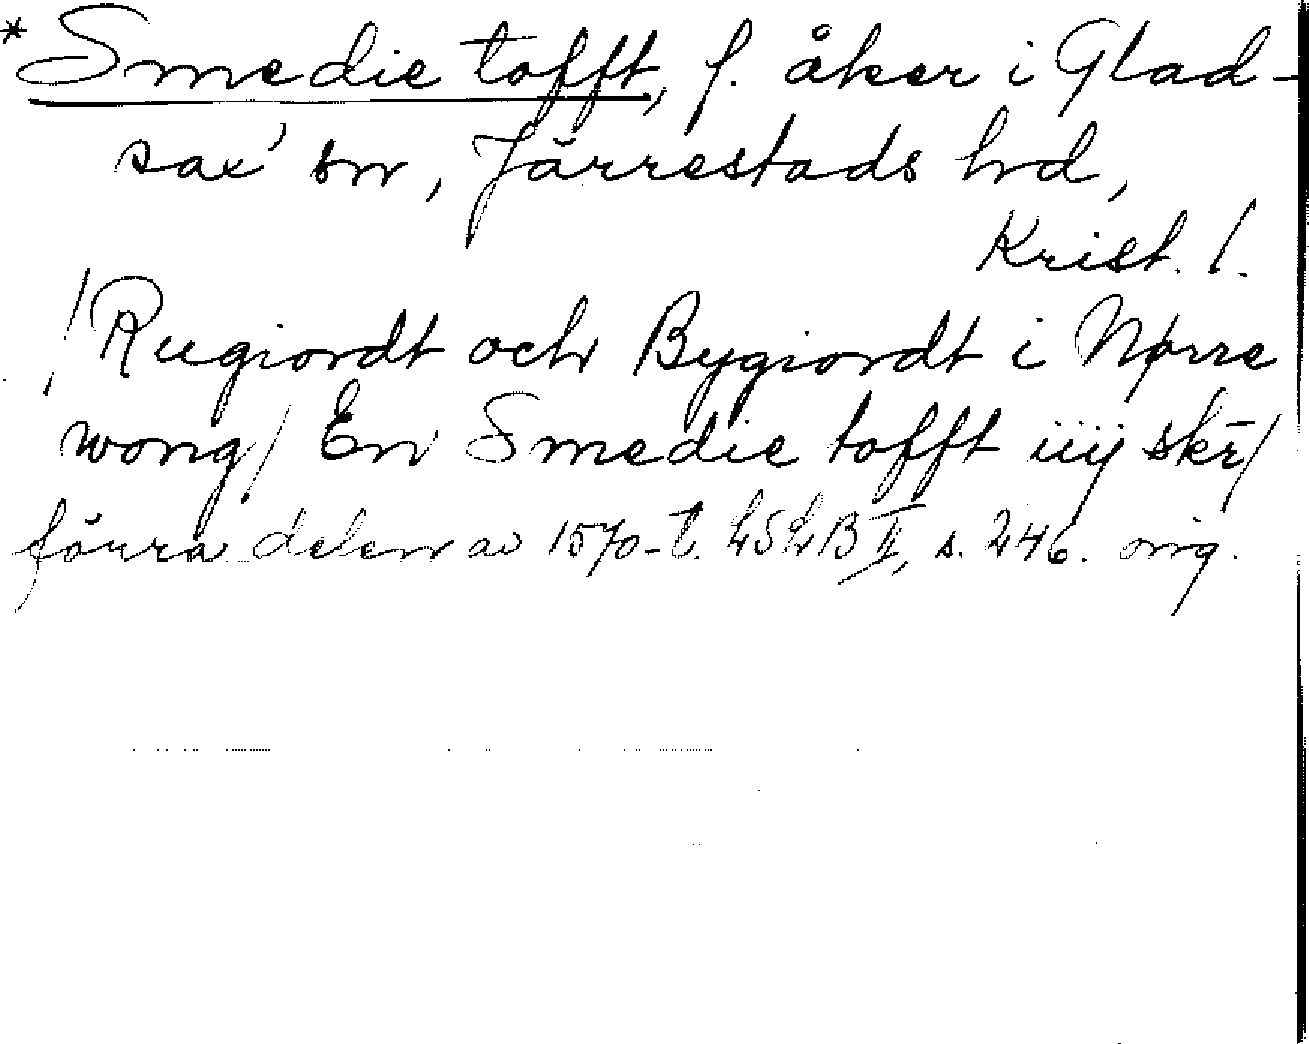 *Smedie tofft, f. åker i Glad-
sax' sn, Järrestads hd,
Krist. l.
/Rugiordt och Bygiordt i Nørre
wong/ En Smedie tofft iiij skr̄/
förra delen av 1570-t. LSLB II, s. 246. orig.